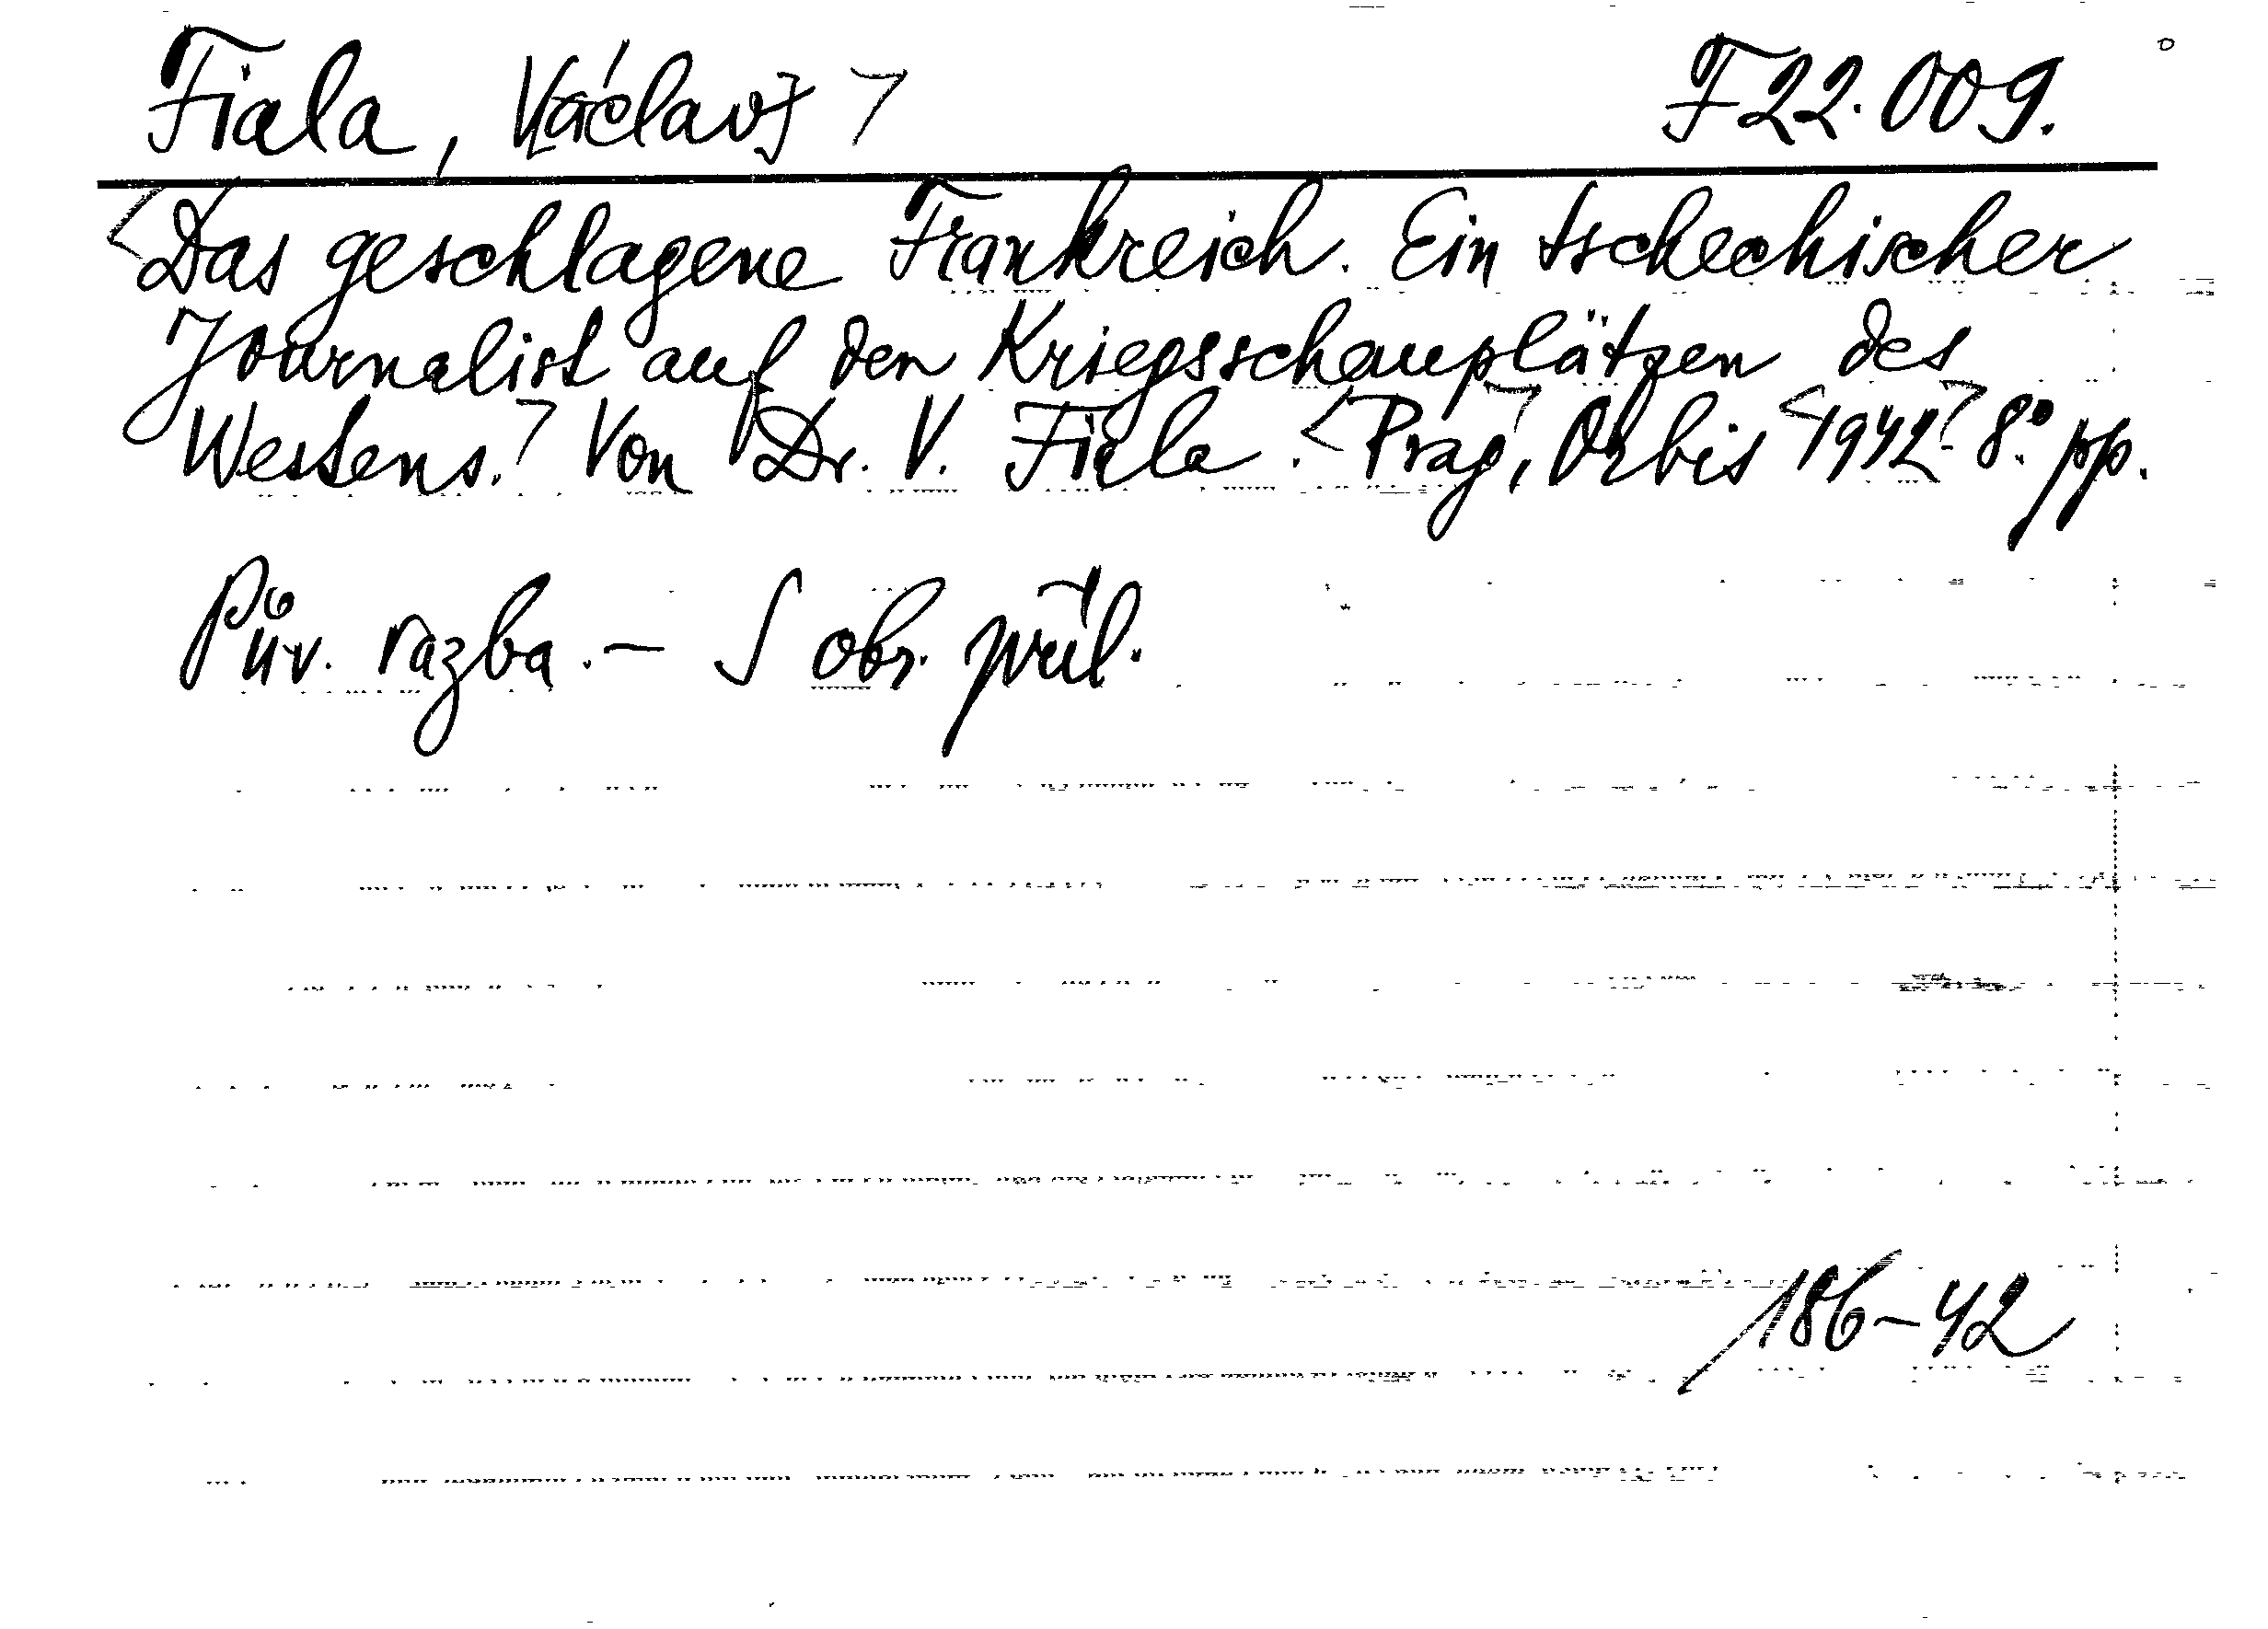 Fiala, V[áclav] > F 22.009.
<Das geschlagene Frankreich. Ein tschechischer
Journalist auf den Kriegsschauplätzen des
Westens.> Von Dr. V. Fiala. <Prag>, Orbis <1942.> 8°. pp.
Pův. vazba. – S obr. příl.
186–42